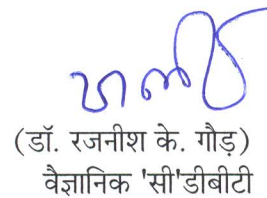 (डॉ. रजनीश के. गौड़)
वैज्ञानिक 'सी'डीबीटी